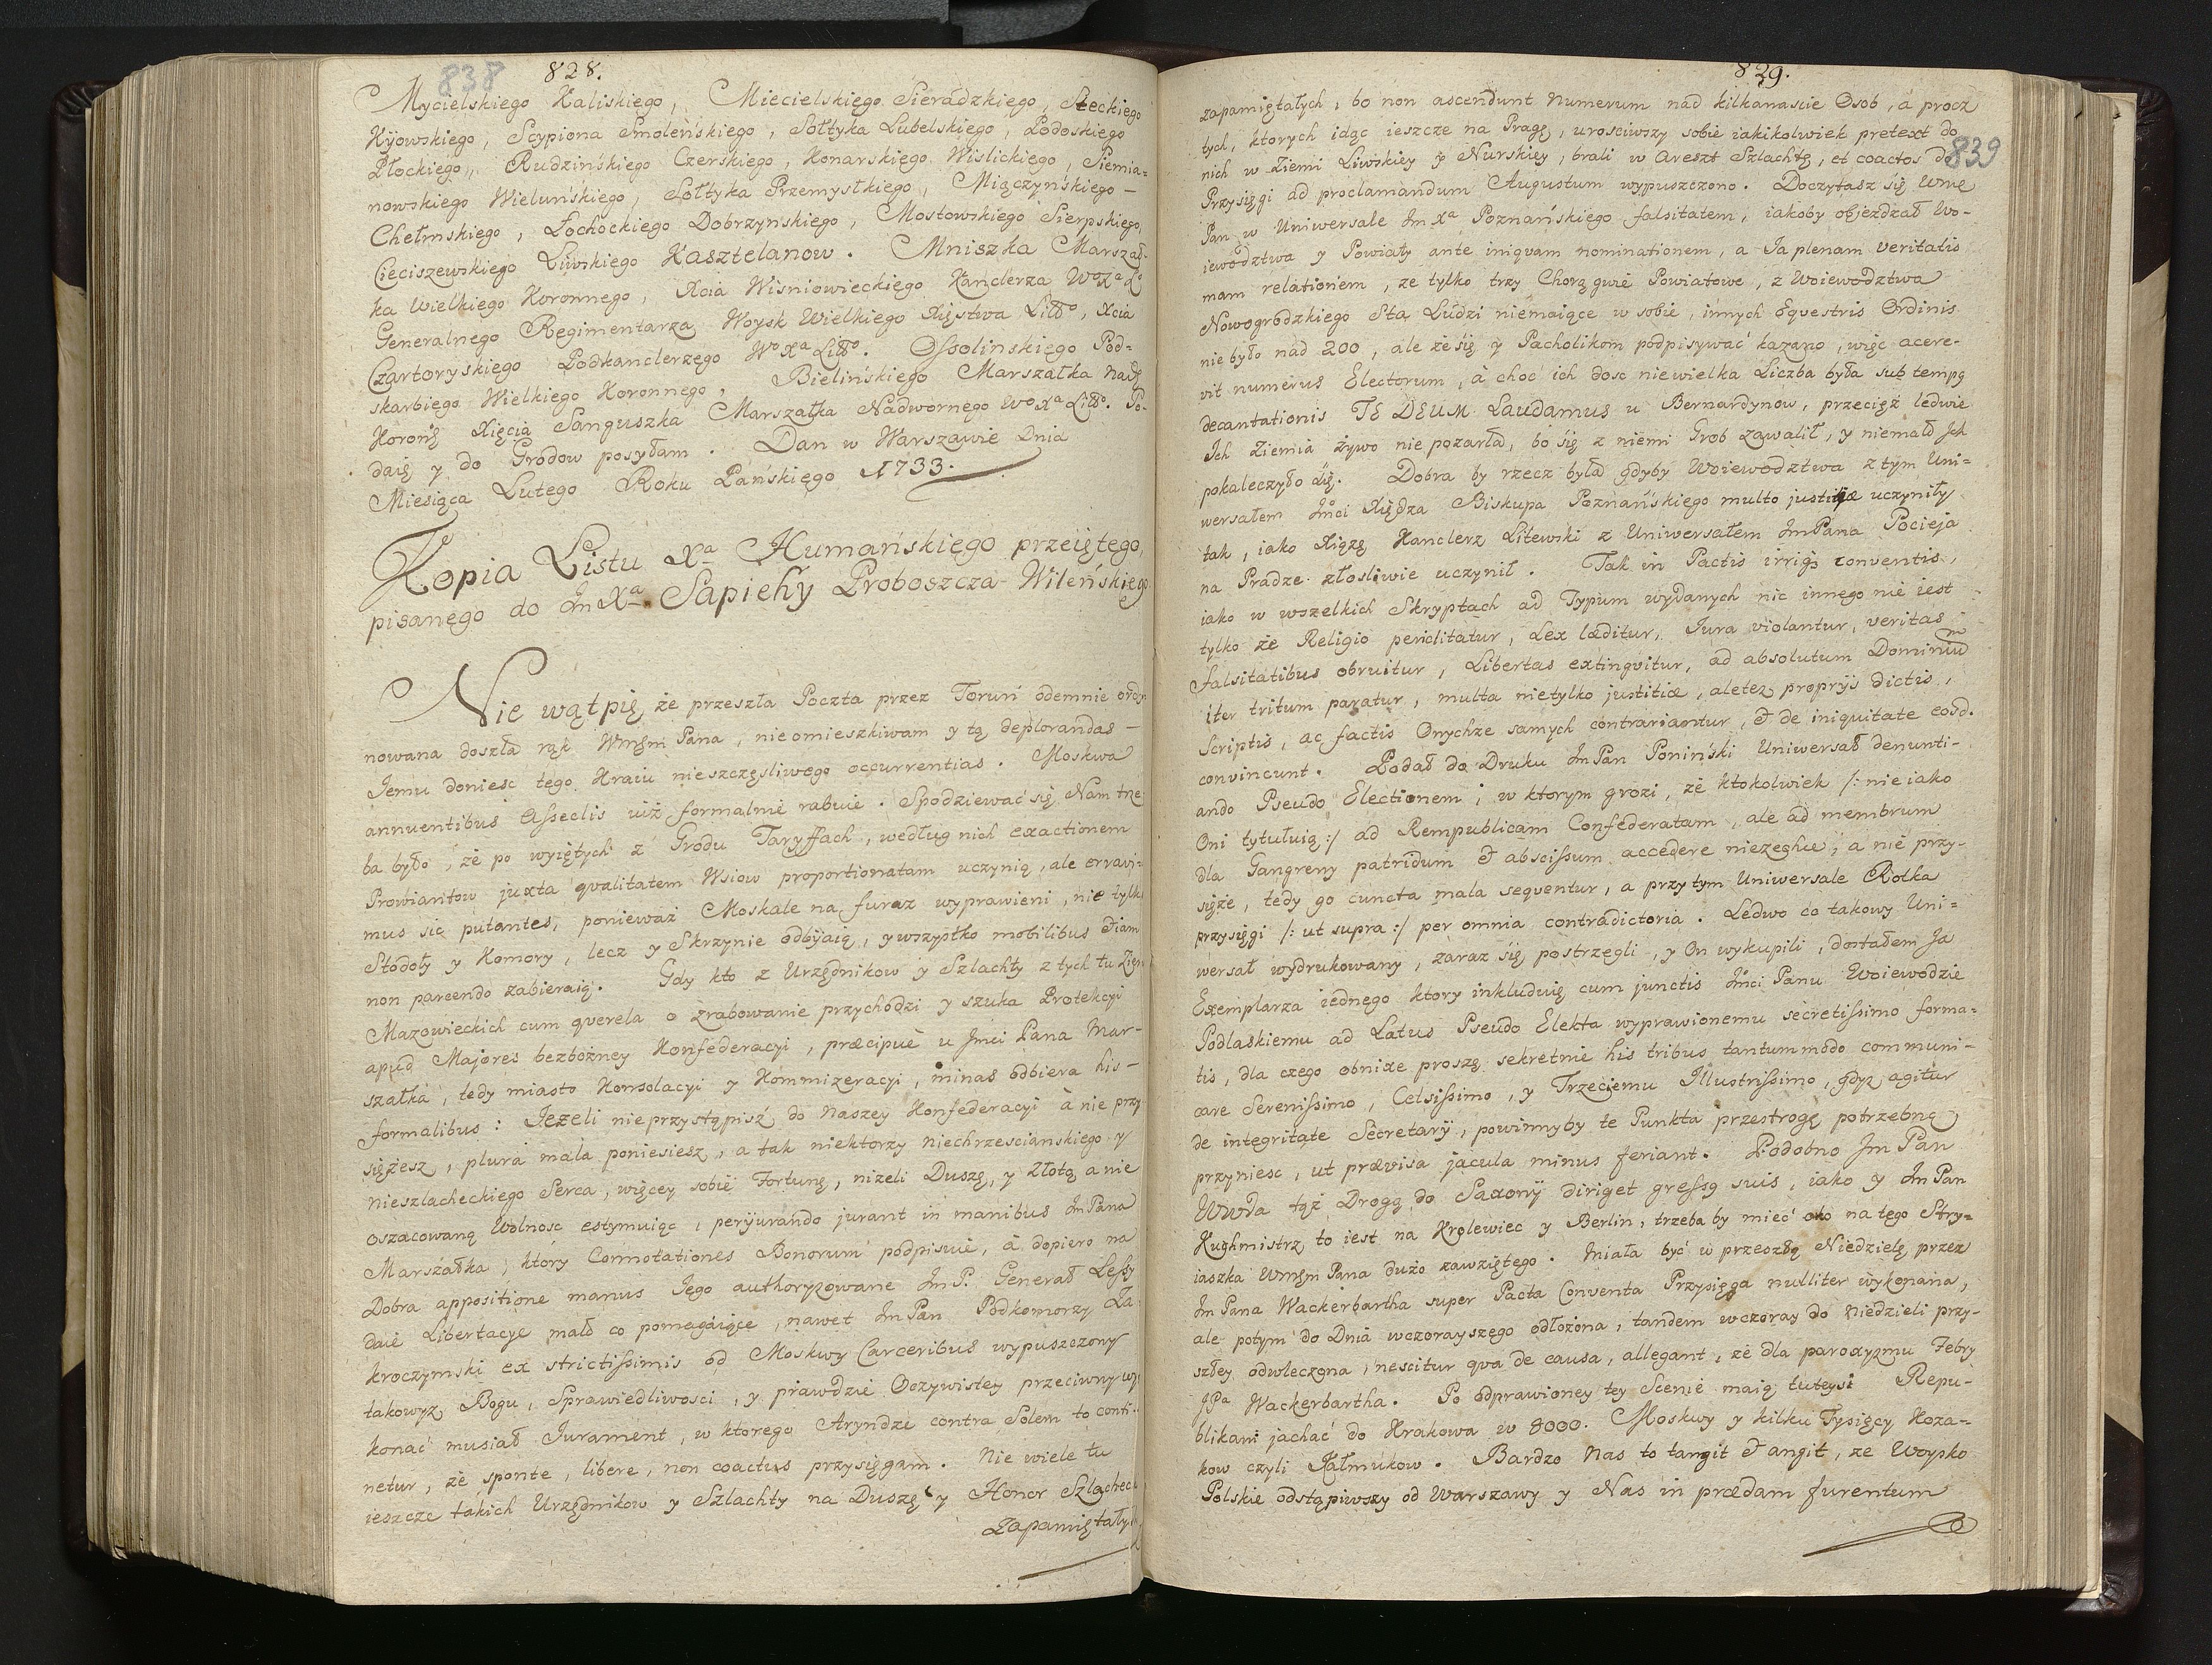 838
828.
Mycielskiego Kaliskiego, Miecielskiego Sieradzkiego, Steckiego
Kyowskiego, Scypiona Smoleńskiego, Sołtyka Lubelskiego, Podoskiego
Płockiego, Rudzińskiego Czerskiego, Konarskiego Wislickiego, Siemia=
nowskiego Wieluńskiego, Sołtyka Przemyskiego, Miączyńskiego –
Chełmskiego, Łochockiego Dobrzynskiego, Mostowskiego Sierpskiego,
Cieciszewskiego Liwskiego Kasztelanow. Mniszka Marszał-
ka Wielkiego Koronnego, Xcia Wisniowieckiego Kanclerza
Generalnego Regimentarza Woysk Wielkiego Xięstwa Litto, Xcia
Czartoryskiego Podkanclerzego Wo Xa Litto. Ossolinskiego Pod=
skarbiego Wielkiego Koronnego, Bielińskiego Marszałka Nadg
Koronẽ Xięcia Sanguszka Marszałka Nadwornego Wo Xa Litto. Po-
daię y do Grodow posyłam. Dan w Warszawie Dnia
Miesiąca Lutego Roku Pańskiego 1733.
Kopia Listu Xa Humańskiego przeiętego,
pisanego do Jm Xa Sapiehy Proboszcza Wileńskiego
Nie wątpię że przeszła Poczta przez Toruń odemnie ordy
nowana doszła rąk Wmgm Pana, nieomieszkiwam y tą deplorandas –
Jemu doniesc tego Kraiu nieszczęsliwego occurrentias. Moskwa
annuentibus Asseclis iuż formalnie rabuie. Spodziewać się Nam trze
ba było, że po wyiętych z Grodu Taryffach, według nich exactionem
Prowiantow juxta qvalitatem Wsiow proportionatam uczynią, ale erravi=
mus sic putantes, ponieważ Moskale na furaż wyprawieni, nie tylko
Stodoły y Komory, lecz y Skrzynie odbijaią, y wszystko mobilibus etiam
non parcendo zabieraią. Gdy kto z Urzędnikow y Szlachty z tych tu Ziem
Mazowieckich cum qverela o zrabowanie przychodzi y szuka Protekcyi
apud Majores bezbożney Konfederacyi, præcipuè u Jmci Pana Mar-
szałka, tedy miasto Konsolacyi y Kommizeracyi, minas odbiera his –
formalibus: Jezeli nieprzystąpisz do Naszey Konfederacyi à nie przy
siężesz, plura mala poniesiesz, a tak niektorzy niechrzescianskiego y
nieszlacheckiego Serca, więcey sobie Fortunę, niżeli Duszę, y Złotą a nie
oszacowaną Wolnosc estymuiąc, perijurando jurant in manibus JmPana
Marszałka, który Connotationes Bonorum podpisuie, à dopiero na
Dobra appositione manus Jego authoryzowane Jm P. Generał Lessy
daie Libertacye mało co pomagaiące, nawet Jm Pan Podkomorzy Za
kroczymski ex strictissimis od Moskwy Carceribus wypuszczony
takowyż Bogu, Sprawiedliwosci, y prawdzie Oczywistey przeciwny wy
konać musiał Jurament, w ktorego Aryndze contra Solem to conti-
netur, że sponte, libere, non coactus przysięgam. Nie wiele tu
ieszcze takich Urzędnikow y Szlachty na Duszę y Honor Szlachecki
Zapamiętały
829.
839
zapamiętałych, bo non ascendunt Numerum nad kilkanascie Osob, à procz
tych, ktorych idąc ieszcze na Pragę, urosciwszy sobie iakikolwiek pretext do
nich w Ziemi Liwskiey y Nurskiey, brali w Areszt Szlachtę, et coactos do
Przysięgi ad proclamandum Augustum wypuszczono. Doczytasz się Wmę
Pan w Uniwersale Jm Xa Poznańskiego falsitatem, iakoby objezdzał Wo-
iewodztwa y Powiaty ante iniqvam nominationem, a Ja plenam veritatis
mam relationem, ze tylko trzy Chorągwie Powiatowe, z Woiewodztwa
Nowogrodzkiego Sta Ludzi niemaiące w sobie, innych Eqvestris Ordinis
nie było nad 200, ale że się y Pacholikom podpisywać kazano, więc acere-
vit numerus Electorum, à choć ich dosc niewielka Liczba była sub tempg
decantationis TE DEUM Laudamus u Bernardynow, przecięż ledwie
Ich Ziemia żywo nie pozarła, bo się z niemi Grob zawalił, y niemało Jch
pokaleczyło się. Dobra by rzecz była gdyby Woiewodztwa z tym Uni=
wersałem Jmci Xiędza Biskupa Poznańskiego multo justiæ uczyniły
tak, iako Xiąze Kanclerz Litewski z Uniwersałem JmPana Pocieja
na Pradze złosliwie uczynił. Tak in Pactis irrigs conventis,
iako w wszelkich Skryptach ad Typum wydanych nic innego nie iest
tylko że Religio periclitatur, Lex læditur, Jura violantur, veritas
falsitatibus obruitur, Libertas extingvitur, ad absolutum Dominiū
iter tritum paratur, multa nietylko justitiæ, aletez proprijs dictis,
Scriptis, ac factis Onychze samych contrariantur, & de iniquitate eosd.
convincunt. Podał do Druku JmPan Poniński Uniwersał denunti-
ando Pseudo Electionem, w ktorym grozi, że ktokolwiek /: nie iako
Oni tytułuią :/ ad Rempublicam Confederatam, ale ad membrum
dla Gangreny patridum & abscissum accedere niezechce, a nie przy-
sięże, tedy go cuncta mala seqventur, a przy tym Uniwersale Rotka
przysięgi /: ut supra :/ per omnia contradictoria. Ledwo co takowy Uni=
wersał wydrukowany, zaraz się postrzegli, y On wykupili, dostałem Ja
Exemplarza iednego ktory inkluduię cum junctis Jmci Panu Woiewodzie
Podlaskiemu ad Latus Pseudo Elekta wyprawionemu secretissimo forma=
tis, dla czego obnixe proszę sekretnie his tribus tantummodo communi-
care Serenissimo, Celsissimo, y Trzeciemu Illustrissimo, gdyz agitur
de integritate Secretarij, powinnyby te Punkta przestrogę potrzebną
przyniesc, ut prævisa jacula minus feriant. Podobno Jm Pan
WWda tąż Drogą do Saxonij diriget gressg suis, iako y Jm Pan
Kuchmistrz to iest na Krolewiec y Berlin, trzeba by mieć oko na tego Stry=
iaszka Wmgm Pana dużo zawziętego. Miała być w przeszłą Niedzielę przez
Jm Pana Wackerbartha super Pacta Conventa Przysięga nulliter wykonana,
ale potym do Dnia wczorayszego odłożona, tandem wczoray do Niedzieli przy-
szłey odwleczona, nescitur qva de causa, allegant, ze dla paroxyzmu Febry
JPa Wackerbartha. Po odprawioney tey Scenie maią tuteysi Repu-
blikani jachać do Krakowa w 8000. Moskwy y kilku Tysięcy Koza=
kow czyli Kałmukow. Bardzo Nas to tangit & angit, ze Woysko
Polskie odstąpiwszy od Warszawy y Nas in prædam furentum